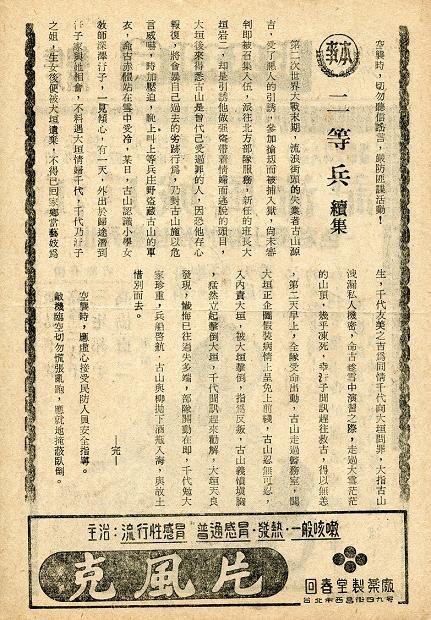 空襲時,切勿聽信謠言,嚴防匪諜活動!
本事
二等兵 續集
第二次世界大戰末期,流浪街頭的失業者古山源
吉,受了惡人的引誘,參加搶刧而被捕入獄,尚未審
判即被召集入伍,派往北方部隊服務,新任的班長大
垣岩二,却是引誘他做强盜帶着情婦而逃脫的頭目,
大垣後來得悉古山是曾代己受過罪的人,因恐他存心
報復,將會暴自己過去的劣跡行爲,乃對古山施以危
言威嚇,時加壓迫,晚上叫上等兵庄野盜藏古山的軍
衣,命古赤體站在雪中受冷,某日,古山認識小學女
教師深澤汀子,一見傾心,有一天,外出於歸途潛到
汀子家與她相會,不料遇大垣情婦千代,千代乃汀子
之姐,生女後便被大垣遺棄,不得已回家鄉當藝妓爲
生,千代友美之吉爲同情千代向大垣問罪,大指古山
洩漏私人機密,命古雪中演習之際,走過大雪茫茫
的山頂,幾乎凍死,幸汀子聞訊趕往救古,得以無恙
,第二天早上,全隊受命出動,古山走過醫務室,聞
大垣正企圖假裝病情上呈免上前綫,古山忍無可忍,
入內責大垣,被大垣擊倒,指爲反叛,古山義憤填胸
,猛然立起擊倒大垣,千代聞訊趕來勸解,大垣天良
發現,懺悔已往過失多端,部隊開動在即,千代勉大
家珍重,兵船啓航,古山與柳拋下酒瓶入海,與故土
惜別而去。
——完——
空襲時,應虛心接受民防人員安全指導。
敵機臨空切勿慌張亂跑,應就地掩蔽臥倒。
主治:流行性感冒 普通感冒·發熱·一般咳嗽
克風片
回春堂製藥廠
台北市西昌街四九號